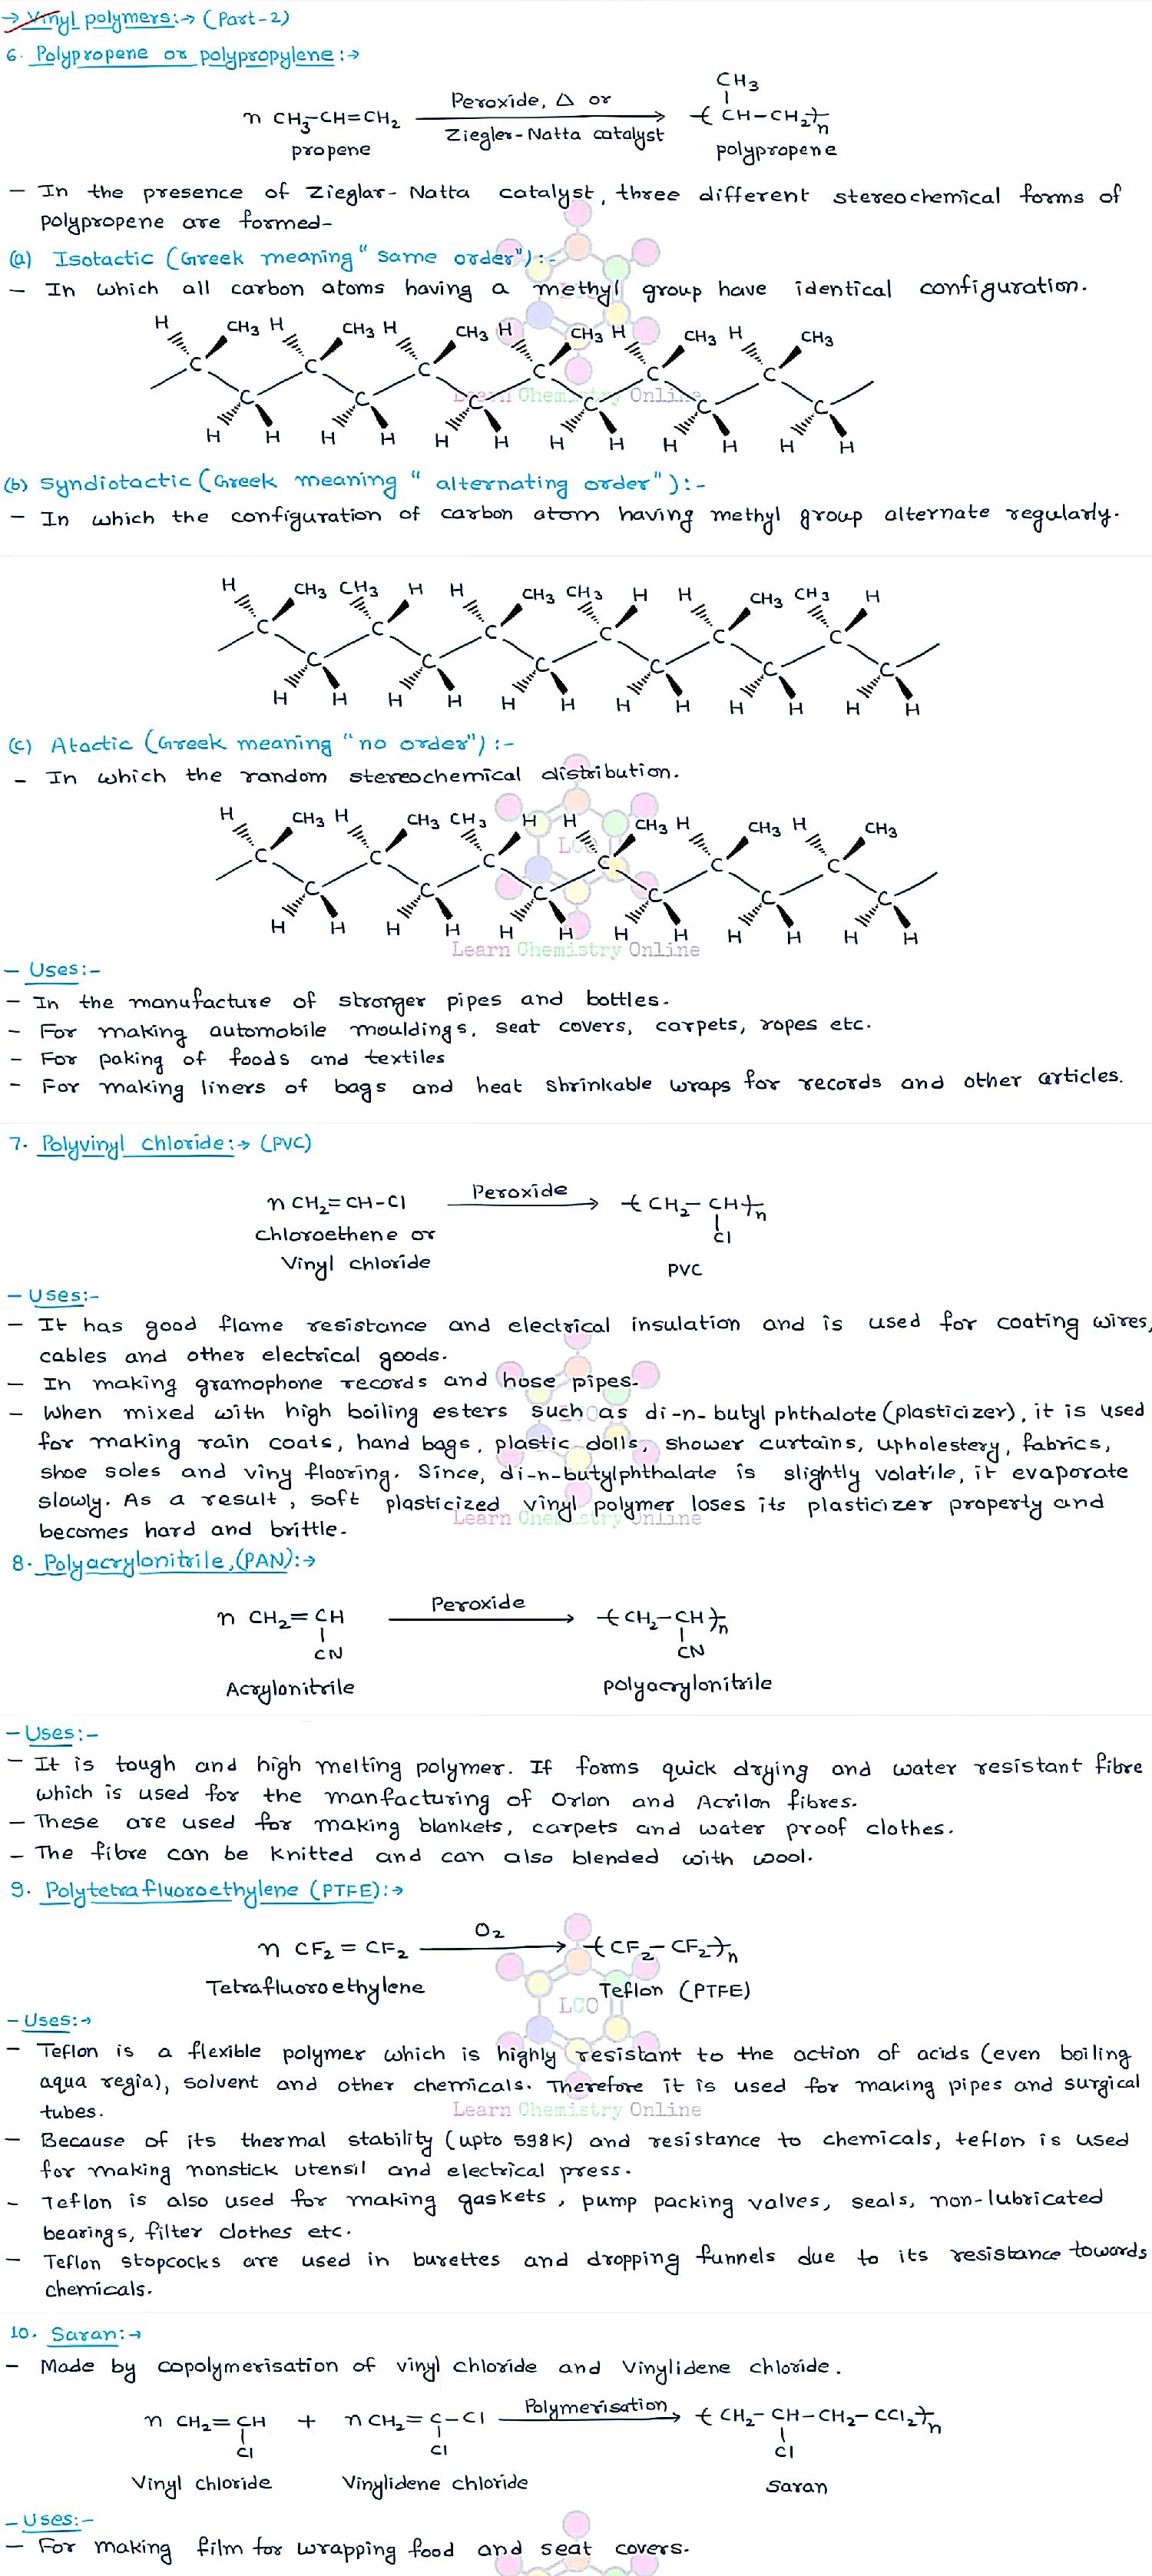 → Vinyl polymers:→ (Part-2)
6. Polypropene or polypropylene:→
n CH3-CH=CH2 Peroxide, Δ or Ziegler-Natta catalyst → -( CH-CH2 )-n
CH3
propene polypropene
– In the presence of Zieglar-Natta catalyst, three different stereochemical forms of
polypropene are formed-
(a) Isotactic (Greek meaning "same order"):-
– In which all carbon atoms having a methyl group have identical configuration.
H CH3 H CH3 H CH3 H CH3 H CH3 H CH3
C C C C C C
C C C C C C
H H H H H H H H H H H H
Learn Chemistry Online
(b) Syndiotactic (Greek meaning "alternating order"):-
– In which the configuration of carbon atom having methyl group alternate regularly.
H CH3 CH3 H H CH3 CH3 H H CH3 CH3 H
C C C C C C
C C C C C C
H H H H H H H H H H H H
(c) Atactic (Greek meaning "no order"):-
– In which the random stereochemical distribution.
H CH3 H CH3 CH3 H H CH3 H CH3 H CH3
LCO
C C C C C C
C C C C C C
H H H H H H H H H H H H
Learn Chemistry Online
– Uses:-
– In the manufacture of stronger pipes and bottles.
– For making automobile mouldings, seat covers, carpets, ropes etc.
– For paking of foods and textiles
– For making liners of bags and heat shrinkable wraps for records and other articles.
7. Polyvinyl chloride:→ (PVC)
n CH2=CH-Cl Peroxide → -( CH2-CH )-n
Cl
Chloroethene or
Vinyl chloride PVC
– Uses:-
– It has good flame resistance and electrical insulation and is used for coating wires,
cables and other electrical goods.
– In making gramophone records and hose pipes.
– When mixed with high boiling esters such as di-n-butyl phthalote (plasticizer), it is used
for making rain coats, hand bags, plastic dolls, shower curtains, upholestery, fabrics,
shoe soles and viny flooring. Since, di-n-butylphthalate is slightly volatile, it evaporate
slowly. As a result, soft plasticized vinyl polymer loses its plasticizer property and
Learn Chemistry Online
becomes hard and brittle.
8. Polyacrylonitrile,(PAN):→
n CH2=CH Peroxide → -( CH2-CH )-n
CN CN
Acrylonitrile polyacrylonitrile
– Uses:-
– It is tough and high melting polymer. If forms quick drying and water resistant fibre
which is used for the manfacturing of Orlon and Acrilon fibres.
– These are used for making blankets, carpets and water proof clothes.
– The fibre can be knitted and can also blended with wool.
9. Polytetrafluoroethylene (PTFE):→
n CF2 = CF2 O2 → -( CF2-CF2 )-n
Tetrafluoroethylene Teflon (PTFE)
LCO
– Uses:→
– Teflon is a flexible polymer which is highly resistant to the action of acids (even boiling
aqua regia), solvent and other chemicals. Therefore it is used for making pipes and surgical
tubes.
Learn Chemistry Online
– Because of its thermal stability (upto 598K) and resistance to chemicals, teflon is used
for making nonstick utensil and electrical press.
– Teflon is also used for making gaskets, pump packing valves, seals, non-lubricated
bearings, filter clothes etc.
– Teflon stopcocks are used in burettes and dropping funnels due to its resistance towards
chemicals.
10. Saran:→
– Made by copolymerisation of vinyl chloride and Vinylidene chloride.
n CH2=CH + n CH2=C-Cl Polymerisation → -( CH2-CH-CH2-CCl2 )-n
Cl Cl Cl
Vinyl chloride Vinylidene chloride Saran
– Uses:-
– For making film for wrapping food and seat covers.